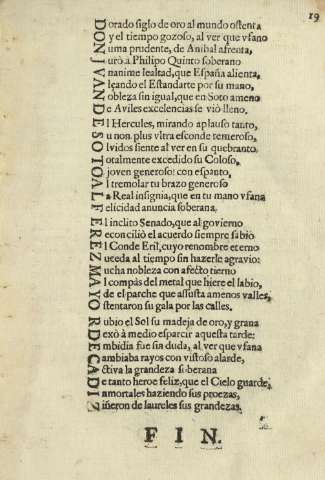 19
Dorado siglo de oro al mundo ostenta
Oy el tiempo gozoso, al ver que vfano
Numa prudente, de Anibal afrenta,
Jurò à Philipo Quinto soberano
Vnanime lealtad, que España alienta,
Alçando el Estandarte por su mano,
Nobleza sin igual, que en Soto ameno
De Aviles excelencias se viò lleno.
El Hercules, mirando aplauso tanto,
Su non plus vltra esconde temeroso,
Olvidos siente al ver en su quebranto
Totalmente excedido su Coloso,
O joven generoso! con espanto,
Al tremolar tu brazo generoso
La Real insignia, que en tu mano vfana
Felicidad anuncia soberana.
El inclito Senado, que al govierno
Reconciliò el acuerdo siempre sabio
El Conde Eril, cuyo renombre eterno
Zuceda al tiempo sin hazerle agravio:
Mucha nobleza con afecto tierno
Al compàs del metal que hiere el labio,
Y de el parche que assusta amenos valles,
Ostentaron su gala por las calles.
Rubio el Sol su madeja de oro, y grana
Dexò à medio esparcir aquesta tarde:
Embidia fue sin duda, al ver que vfana
Cambiaba rayos con vistoso alarde,
Activa la grandeza soberana
De tanto heroe feliz, que el Cielo guarde,
Inmortales haziendo sus proezas,
Ziñeron de laureles sus grandezas.
FIN.